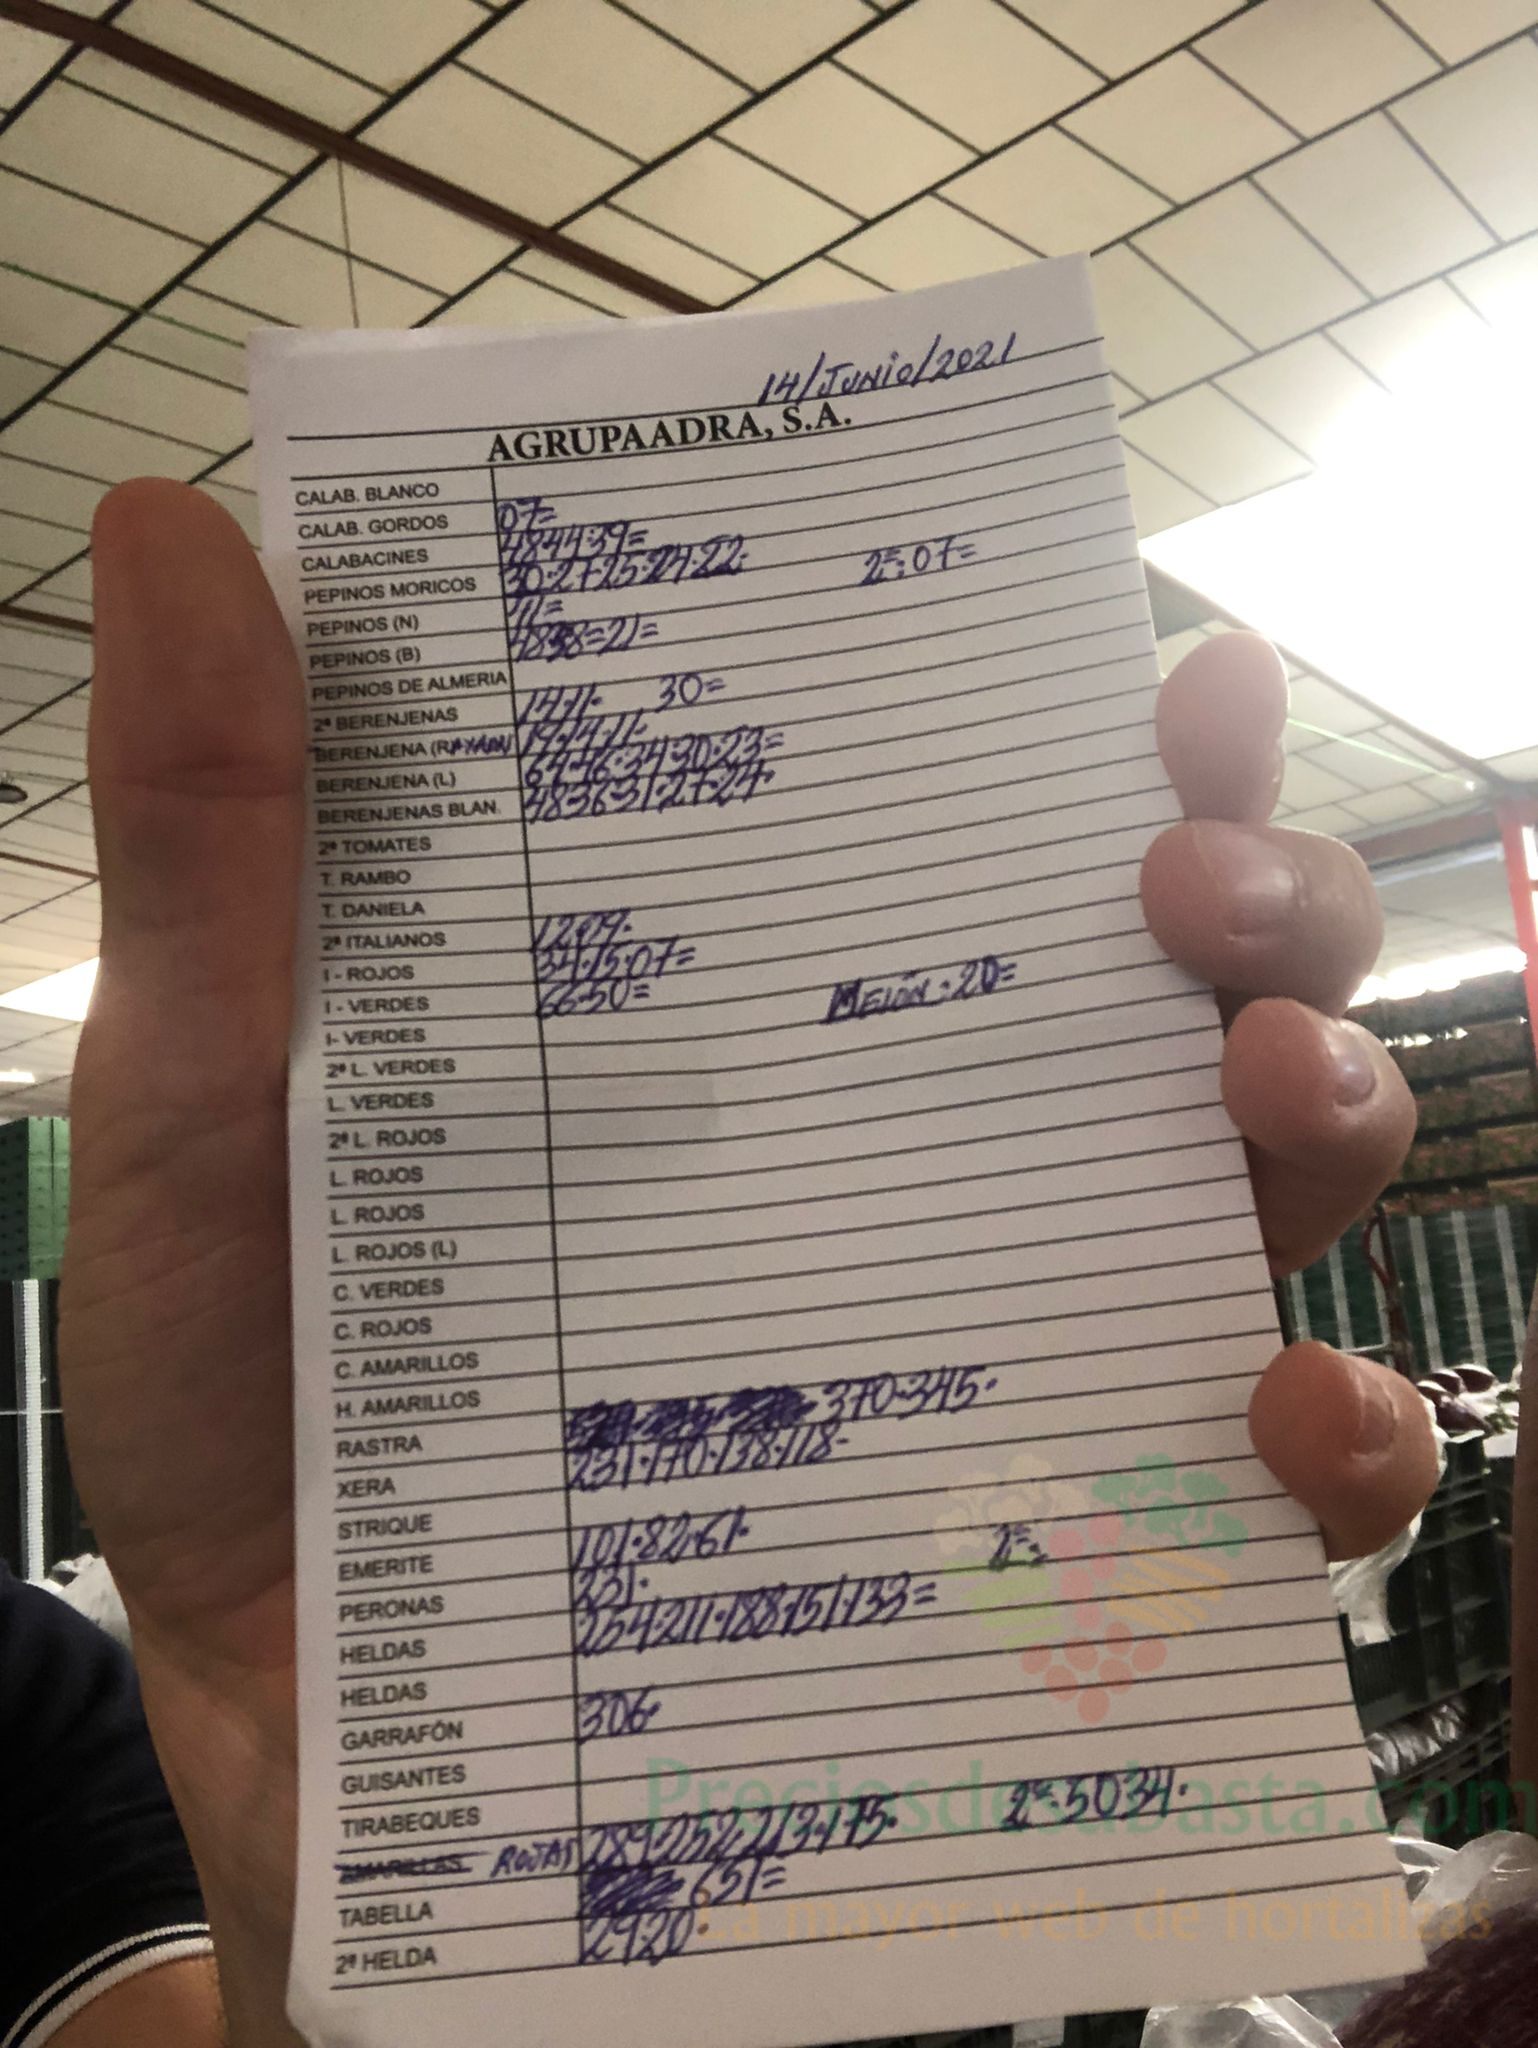 14/JUNIO/2021
AGRUPAADRA, S.A.
CALAB. BLANCO
CALAB. GORDOS 07=
CALABACINES 48·44·39=
PEPINOS MORICOS 30·27·25·24·22· 2ª:07=
PEPINOS (N) 11=
PEPINOS (B) 48·38=21=
PEPINOS DE ALMERIA
2ª BERENJENAS 14·11· 30=
BERENJENA (RAYADA) 19·14·11·
BERENJENA (L) 64·46·34·30·23=
BERENJENAS BLAN. 48·36·31·27·24·
2ª TOMATES
T. RAMBO
T. DANIELA
2ª ITALIANOS 12·09·
I - ROJOS 34·15·07=
I - VERDES 66·50= MELÓN:20=
I- VERDES
2ª L. VERDES
L. VERDES
2ª L. ROJOS
L. ROJOS
L. ROJOS
L. ROJOS (L)
C. VERDES
C. ROJOS
C. AMARILLOS
H. AMARILLOS
RASTRA 370·345·
XERA 231·170·138·118-
STRIQUE
EMERITE 101·82·61· 2ª:
PERONAS 231·
HELDAS 254·211·188·151·133=
HELDAS
GARRAFÓN 306·
GUISANTES
TIRABEQUES
AMARILLAS ROJAS 289·252·213·175· 2ª:50 34·
TABELLA 651=
2ª HELDA 29·20·
Preciosdesubasta.com
La mayor web de hortalizas